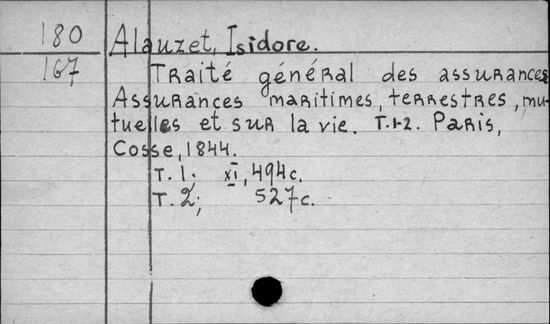 180 Alauzet, Isidore.
167 Traité général des assurances
Assurances maritimes, terrestres, mu-
tuelles et sur la vie. T.1-2. Paris,
Cosse, 1844.
T. 1; XI, 494c.
T. 2; 527c.